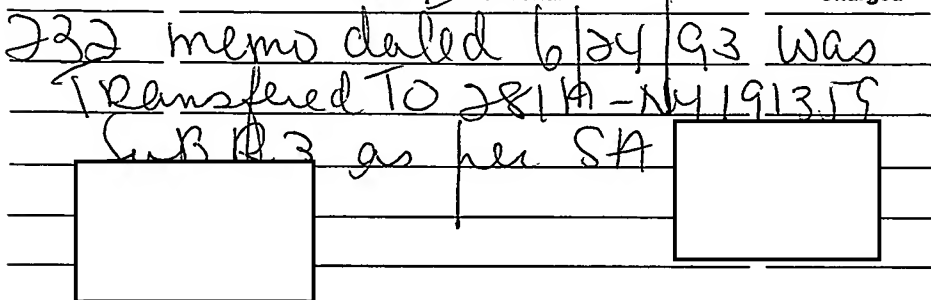 Charged
232 memo dated 6/24/93 was
Transfered To 281A-NY191359
Sub A3 as per SA